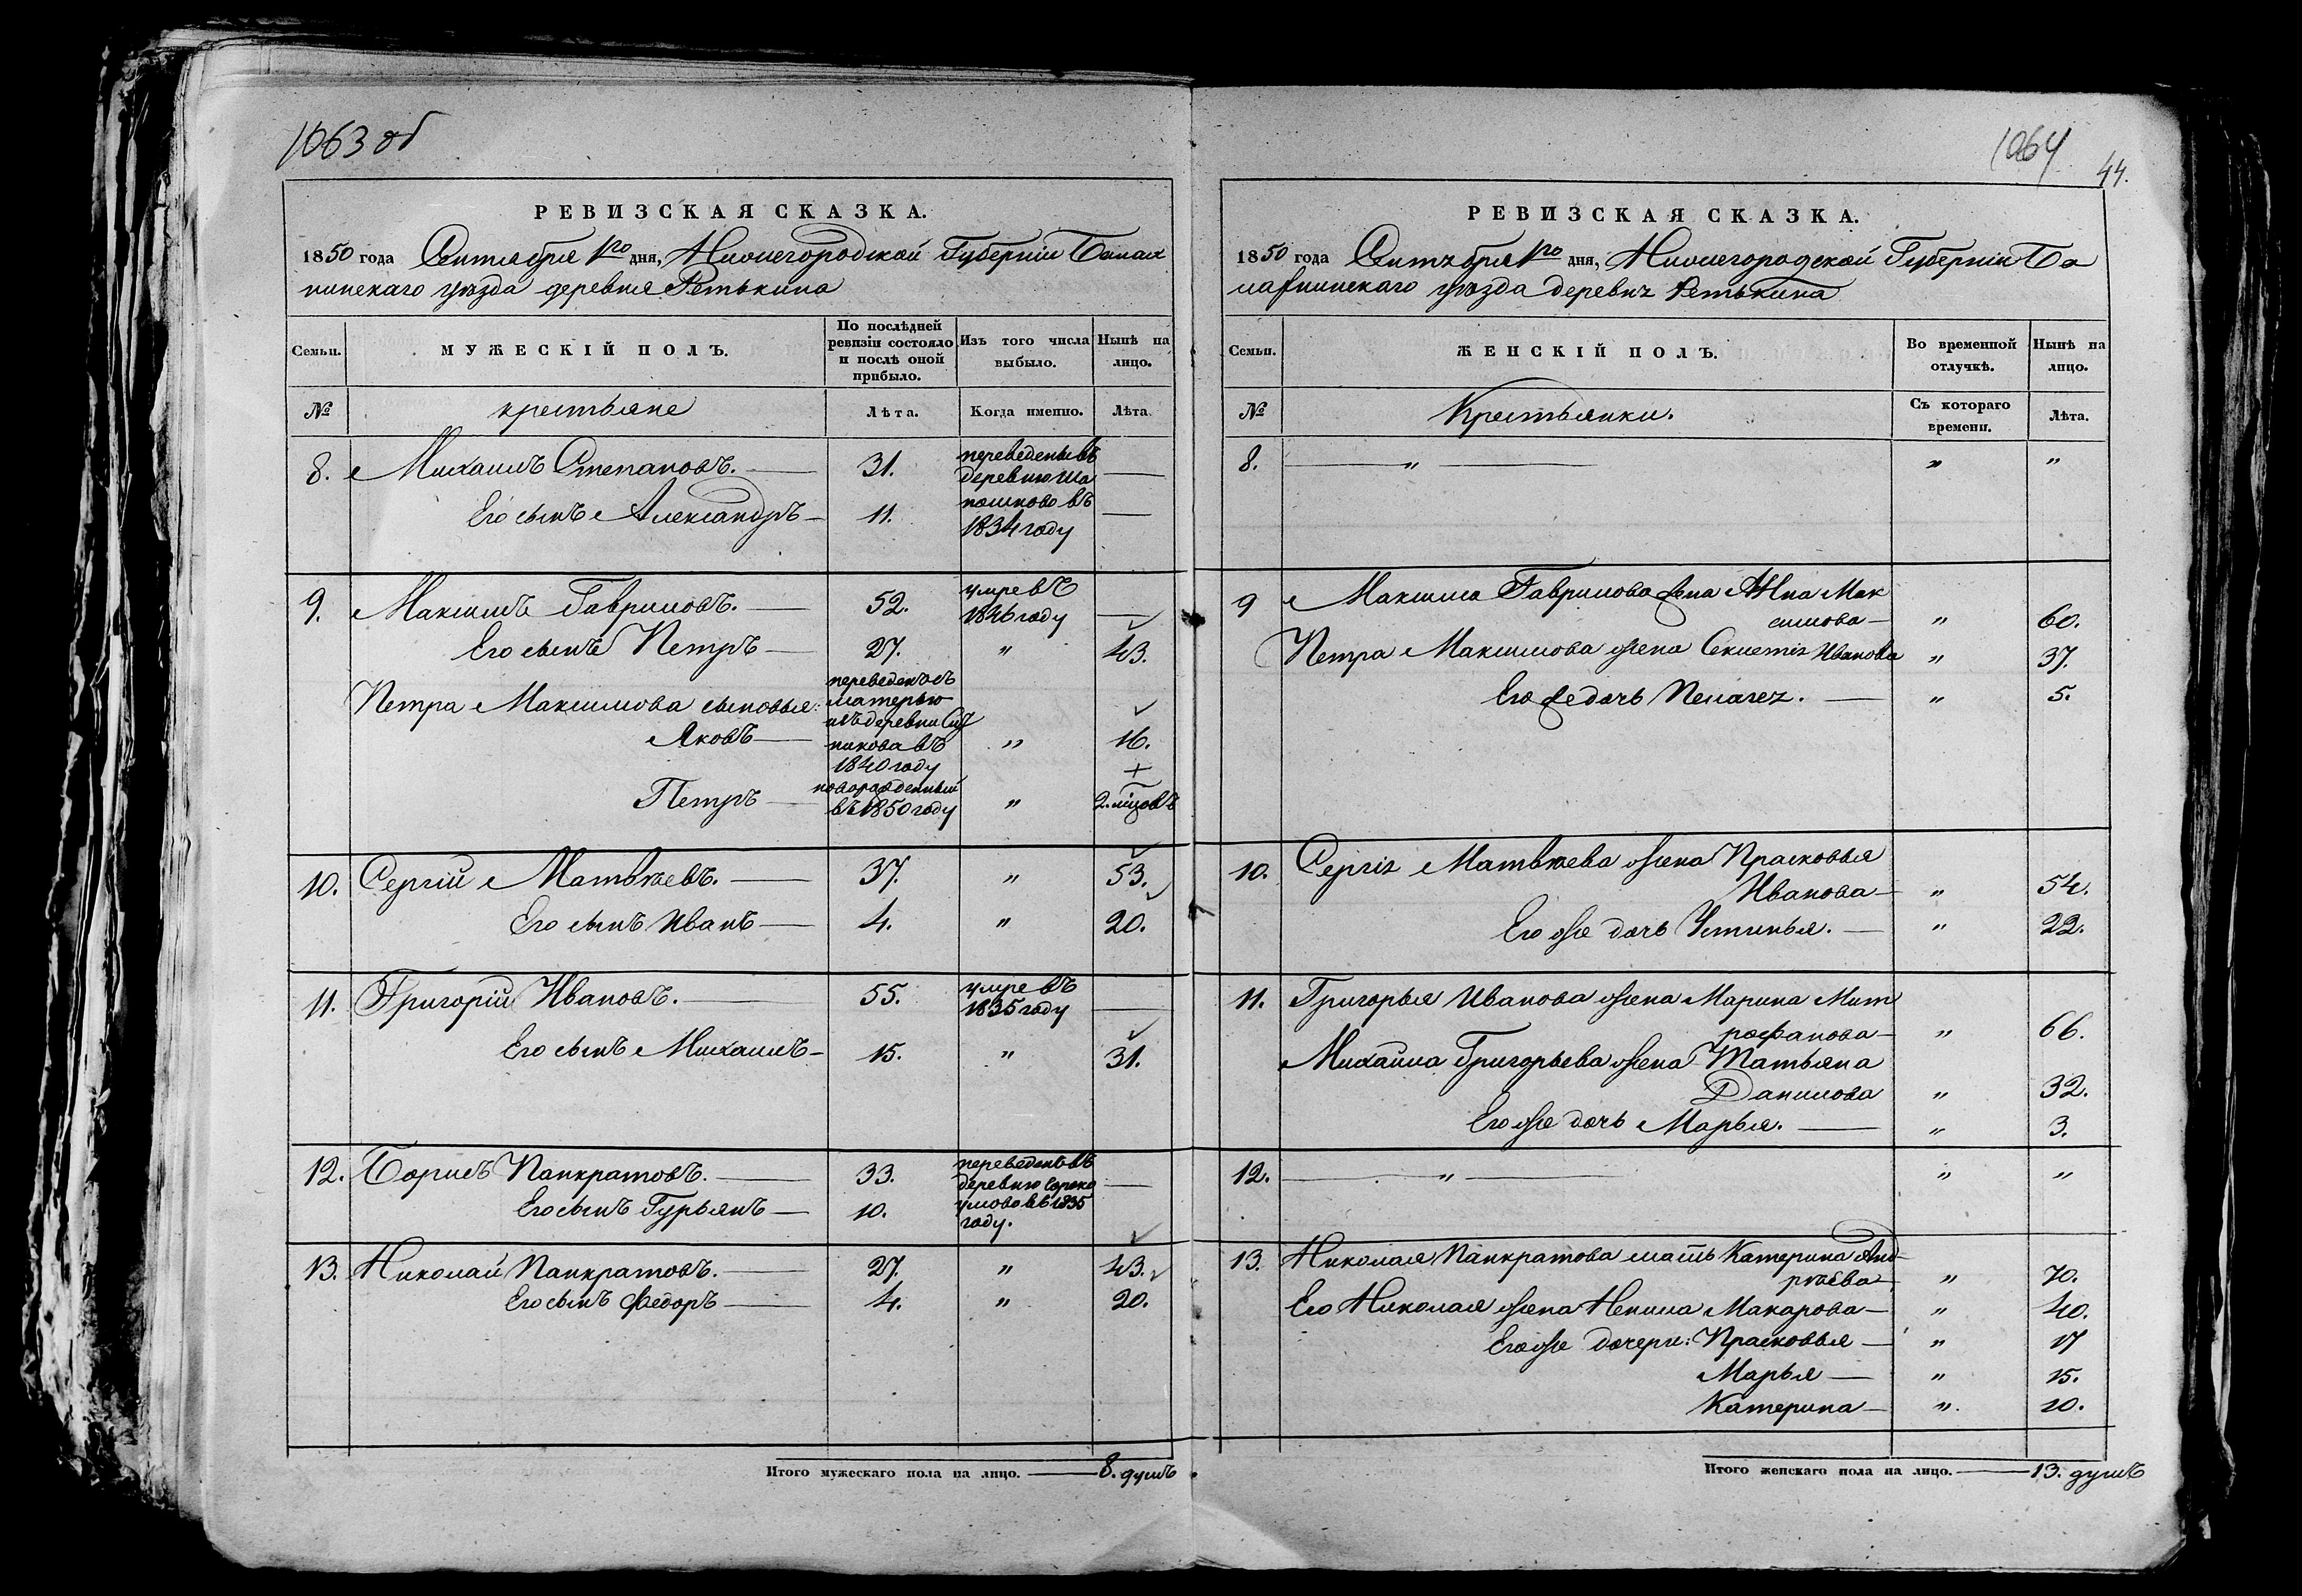 1063 об
РЕВИЗСКАЯ СКАЗКА.
1850 года Сентября 1го дня, Нижегородской Губернии Балах
нинскаго уѣзда деревня Ретькина
Семьи.
МУЖЕСКІЙ ПОЛЪ.
По послѣдней ревизіи состояло и послѣ оной прибыло.
Изъ того числа выбыло.
Нынѣ на лицо.
№
крестьяне
Лѣта.
Когда именно.
Лѣта
8. Михаилъ Степановъ. — 31. переведены въ —
деревню
Его сынъ Александръ — 11. въ —
1834 году
9. Максимъ Гавриловъ. — 52. умре въ
1846 году —
Его сынъ Петръ — 27. " 43.
Петра Максимова сыновья: переведенъ съ
матерью
изъ деревни
Яковъ — въ " 16.
1840 году
Петръ — новорожденный
въ 1850 году " 2. мѣцовъ
10. Сергій Матвѣевъ. — 37. " 53.
Его сынъ Иванъ — 4. " 20.
11. Григорій Ивановъ. — 55. умре въ
1835 году —
Его сынъ Михаилъ — 15. " 31.
12. Борисъ Панкратовъ. — 33. переведенъ въ
деревню Сороко —
Его сынъ Гурьянъ — 10. умово въ 1835
году.
13. Николай Панкратовъ. — 27. " 43.
Его сынъ Федоръ — 4. " 20.
Итого мужескаго пола на лицо. — 8. душъ
1064
44.
РЕВИЗСКАЯ СКАЗКА.
1850 года Сентября 1го дня, Нижегородской Губернии Ба
лахнинскаго уѣзда деревня Ретькина
Семьи.
ЖЕНСКІЙ ПОЛЪ.
Во временной отлучкѣ.
Нынѣ на лицо.
№
Крестьянки.
Съ котораго времени.
Лѣта.
8. — " — " "
9 Максима Гаврилова жена Анна Мак
симова — " 60.
Петра Максимова жена Иванова " 37.
Его же дочь Пелагея. — " 5.
10. Сергія Матвѣева жена Прасковья
Иванова — " 54.
Его же дочь Устинья. — " 22.
11. Григорья Иванова жена Марина Мит
рофанова — " 66.
Михаила Григорьева жена Татьяна
Данилова " 32.
Его же дочь Марья. — " 3.
12. — " — " "
13. Николая Панкратова мать Катерина Анд
рѣева — " 70.
Его Николая жена Ненила Макарова — " 40.
Его же дочери: Прасковья — " 17
Марья — " 15.
Катерина — " 10.
Итого женскаго пола на лицо. — 13. душъ